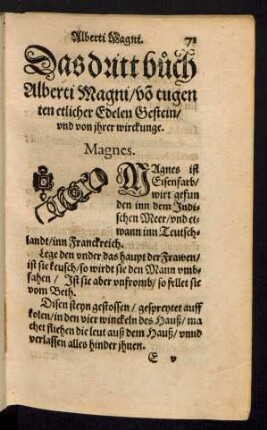 Alberti Magni. 71
Das dritt bůch
Alberti Magni/ võ tugen
ten etlicher Edelen Gestein/
vnd von jhrer wirckunge.
Magnes.
MAgnes ist
Eisenfarb/
wirt gefun
den inn dem Indi-
schen Meer/ vnd et-
wann inn Teutsch-
landt/ inn Franckreich.
Lege den vnder das haupt der Frawen/
ist sie keusch/ so wirdt sie den Mann vmb-
fahen/ Ist sie aber vnfromb/ so fellet sie
vom Beth.
Disen steyn gestossen/ gespreytet auff
kolen/ in den vier winckeln des Hauß/ ma
chet fliehen die leut auß dem Hauß/ vnnd
verlassen alles hinder jhnen.
E v